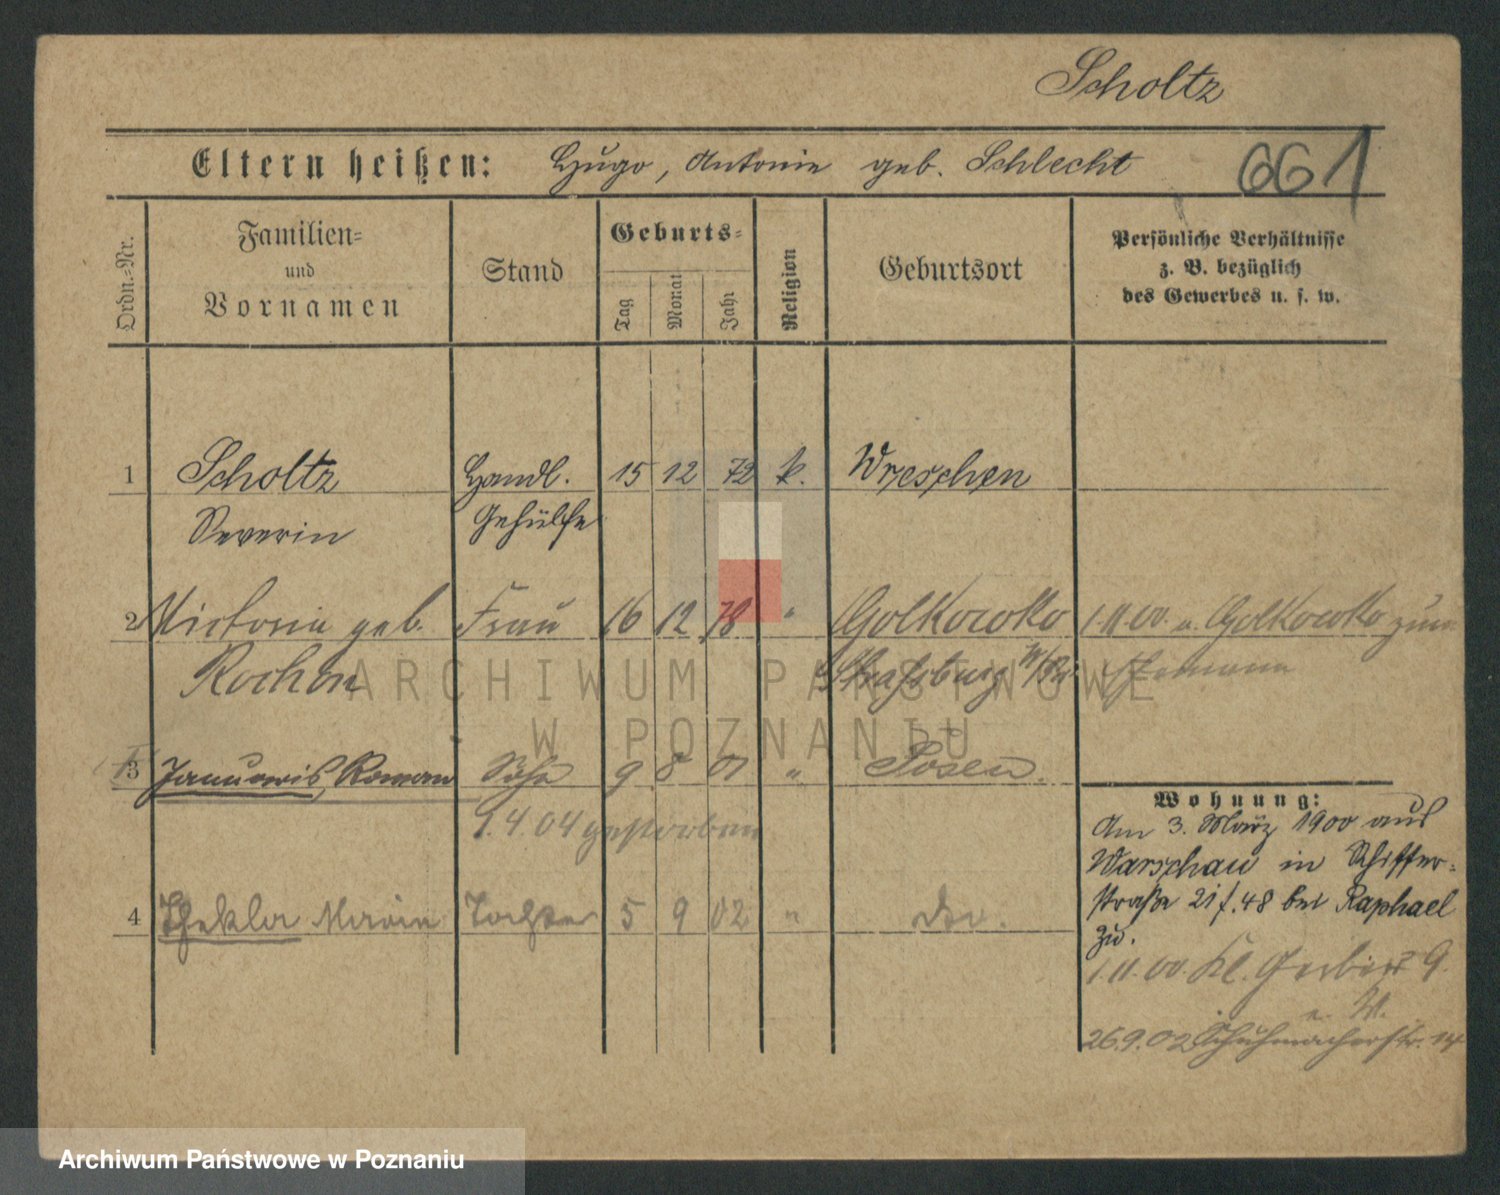 Scholtz
Eltern heißen: Hugo, Antonie geb. Schlecht
661
Ordn.-Nr.
Familien-
und
Vornamen
Stand
Geburts-
Tag
Monat
Jahr
Religion
Geburtsort
Persönliche Verhältnisse
z. B. bezüglich
des Gewerbes u. s. w.
1 Scholtz Handl. 15 12 72 k. Wreschen
Severin Gehülfe
2 Victoria geb. Frau 16 12 78 " Golkowko 1.11.00. v. Golkowko zum
Rochon Strasburg W/Pr. Ehemann
3 Januaris, Roman Sohn 9 8 01 " Posen.
9.4.04 gestorben
4 Thekla Maria Tochter 5 9 02 " do.
Wohnung:
Am 3. März 1900 aus
Warschau in Schiffer-
straße 21 f. 48 bei Raphael
zu.
1.11.00. Kl. Gerberst 9.
u. W.
26.9.02 Schuhmacherstr. 14
ARCHIWUM PAŃSTWOWE
W POZNANIU
Archiwum Państwowe w Poznaniu